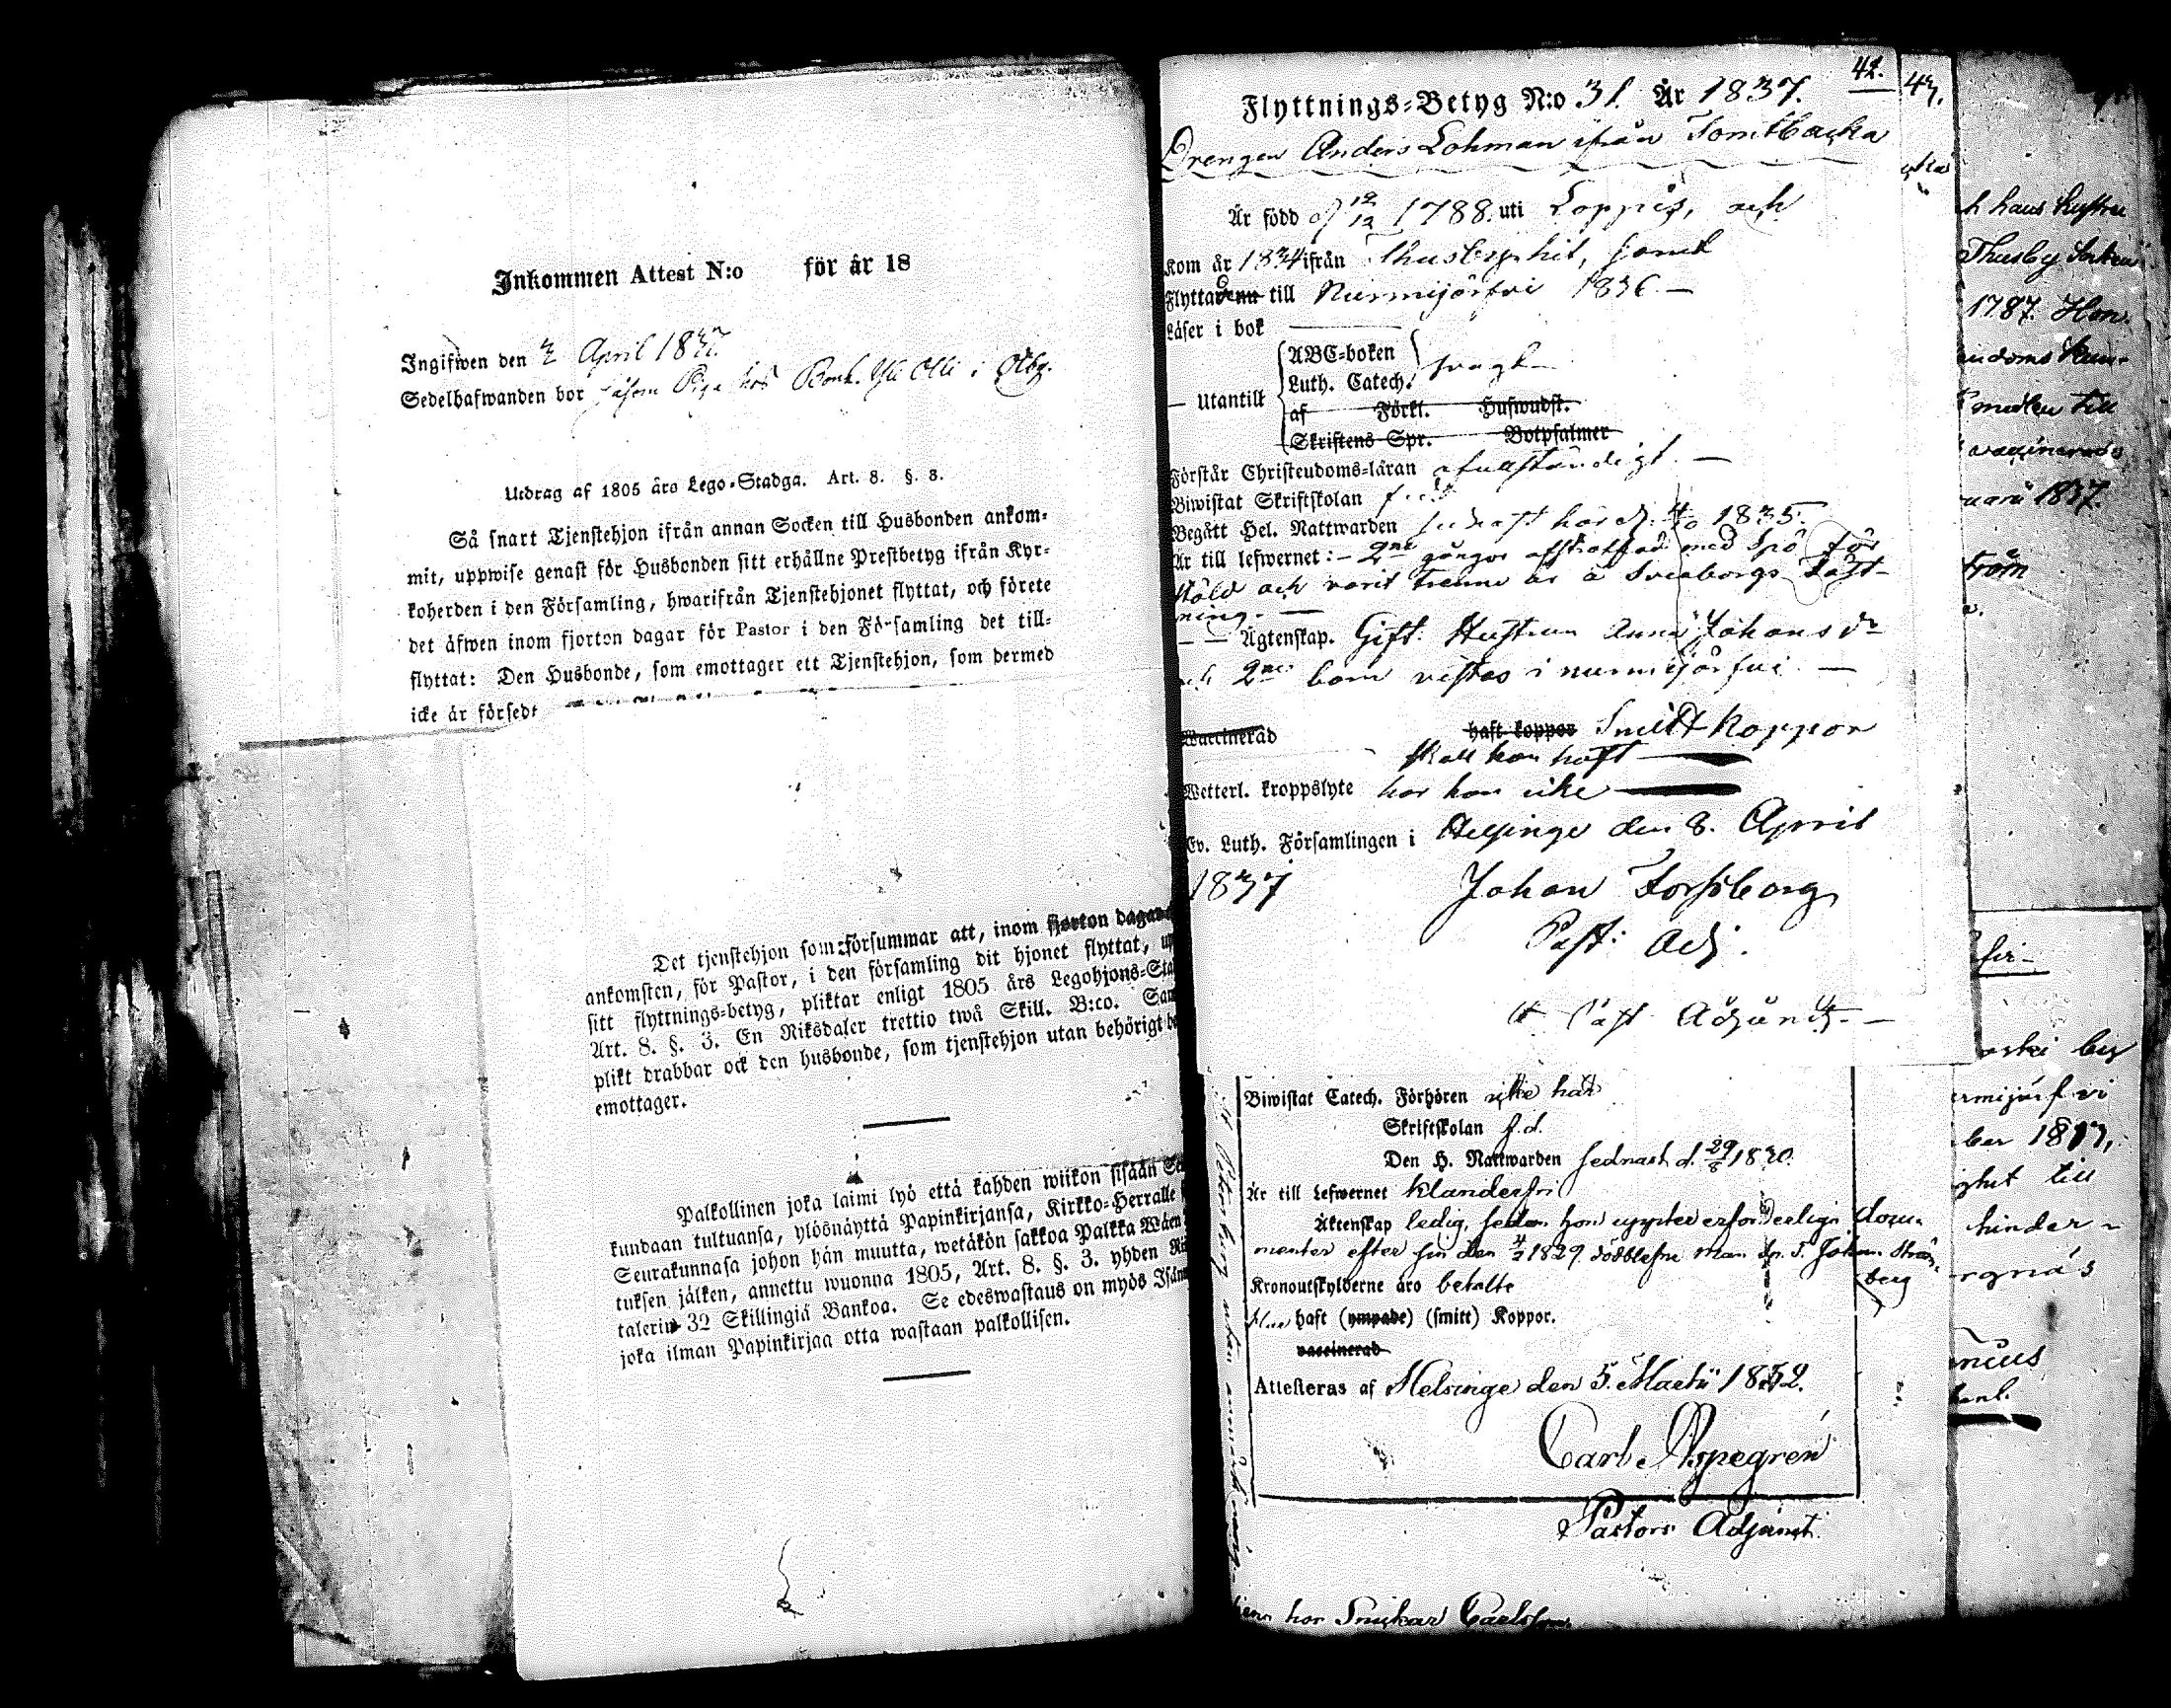 Inkommen Attest N:o för år 18
Ingifwen den April 183
Sedelhafwanden bor såsom Piga hos Bond. Yli Olli i
Utdrag af 1805 års Lego-Stadga. Art. 8. §. 3.
Så snart Tjenstehjon ifrån annan Socken till Husbonden ankom-
mit, uppwise genast för Husbonden sitt erhållne Prestbetyg ifrån Kyr-
koherden i den Församling, hwarifrån Tjenstehjonet flyttat, och förete
det äfwen inom fjorton dagar för Pastor i den Församling det till-
flyttat: Den Husbonde, som emottager ett Tjenstehjon, som dermed
icke är försedt
Det tjenstehjon som försummar att, inom fjorton dagar
ankomsten, för Pastor, i den församling dit hjonet flyttat, up
sitt flyttnings-betyg, pliktar enligt 1805 års Legohjons-Sta
Art. 8. §. 3. En Riksdaler trettio twå Skill. B:co. Sam
plikt drabbar ock den husbonde, som tjenstehjon utan behörigt be
emottager.
Palkollinen joka laimi lyö että kahden wiikon sisään Se
kundaan tultuansa, ylösnäyttä Papinkirjansa, Kirkko-Herralle
Seurakunnasa johon hän muutta, wetäkön sakkoa Palkka Wäen
tuksen jälken, annettu wuonna 1805, Art. 8. §. 3. yhden Rik
talerin 32 Skillingiä Bankoa. Se edeswastaus on myös Isän
joka ilman Papinkirjaa otta wastaan palkollisen.
42.
Flyttnings-Betyg N:o 31. År 1837.
Drengen Anders Lohman ifrån Tomtbacka
Är född d 12/12 1788. uti Loppis, och
Kom år 1834 ifrån Thusby hit, samt
Flyttade nu till Nurmijärfvi 1836. —
Läser i bok
— Utantill ABC-boken
Luth. Catech. svagt —
af Förkl. Huswudst.
Skriftens Spr. Botpsalmer
Förstår Christendoms-läran ofullständigt. —
Biwistat Skriftskolan
Begått Hel. Nattwarden sednast här d. 1835.
Är till lefwernet: — 2ne gånger afstraffad med Spö för
stöld och varit trenne år å Sveaborgs Fäst-
ning. —
— — Ägtenskap. Gift. Hustrun Anna Johansdr
och 2ne barn vistas i nurmijärfvi. —
Waccinerad haft koppor Smittkoppor
skall han haft —
Wetterl. kroppslyte har han icke —
Ev. Luth. Församlingen i Helsinge den 8. April
1837
Johan Forssborg
Past: Adj.
Past Adjunct. —
Biwistat Catech. Förhören icke här
Skriftskolan f.d.
Den H. Nattwarden sednast d. 29/8 1830.
Är till Lefwernet klanderfri
Äktenskap ledig, sedan hon uppter erforderliga docu-
menter efter sin den 1829 dödblefne man Johan Strömberg
Kronoutskylderne äro betalte
haft (ympade) (smitt) Koppor.
vaccinerad
Attesteras af Helsinge den 5. Martii 1832.
Carl Aspegrén
Pastors Adjunct.
hos Snickar Carlsson
43.
h hans hustru
Thusby Socken
1787. Hon
endoms kun-
till
vaccinerade
uarii 1837.
ström
koski by
urmijärfvi
ber 1813,
till
hinder